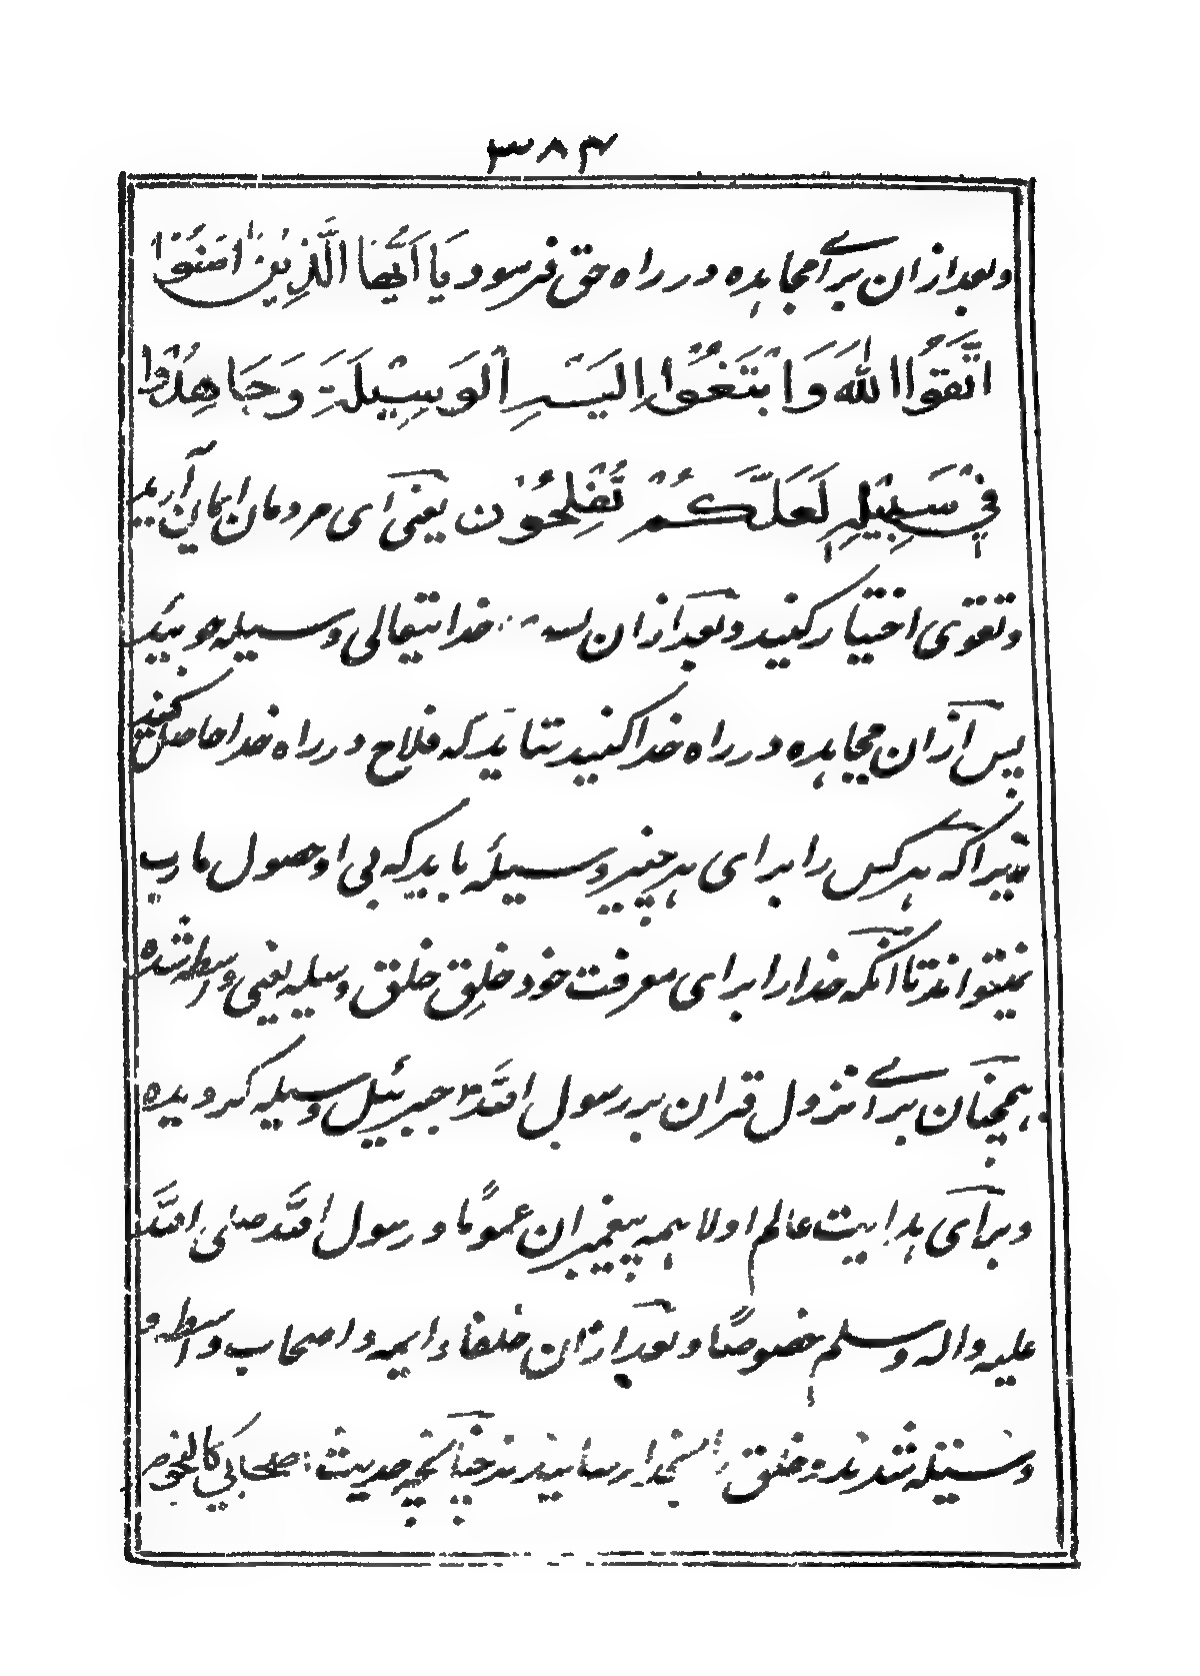 ۳۸۴
وبعد ازان برای مجاہدہ در راہ حق فرمود یَا اَیُّهَا الَّذِیْنَ اٰمَنُوْا
اتَّقُوا اللهَ وَابْتَغُوْا اِلَیْهِ الْوَسِیْلَةَ وَجَاهِدُوْا
فِیْ سَبِیْلِهٖ لَعَلَّكُمْ تُفْلِحُوْن یعنی ای مردمان ایمان آرید
وتقوی اختیار کنید وبعد ازان خدا تعالی وسیلہ جوئید
پس ازان مجاہدہ در راہ خدا کنید شاید کہ فلاح در راہ خدا حاصل کنید
زیرا کہ ہر کس را برای ہر چیز وسیلہ باید کہ بی او حصول مارب
نمیتواند تا آنکہ خدا را برای معرفت خود خلق خلق وسیلہ یعنی واسطہ شدہ
ہمچنان برای نزول قران بر رسول اللہ جبرئیل وسیلہ گردیدہ
وبرای ہدایت عالم اولا ہمہ پیغمبران عموماً و رسول اللہ صلی اللہ
علیہ والہ وسلم خصوصاً وبعد ازان خلفاء وایمہ واصحاب واسطہ و
وسیلہ شدند وخلق را بخدا رسانیدند چنانچہ حدیث اصحابی کالنجوم